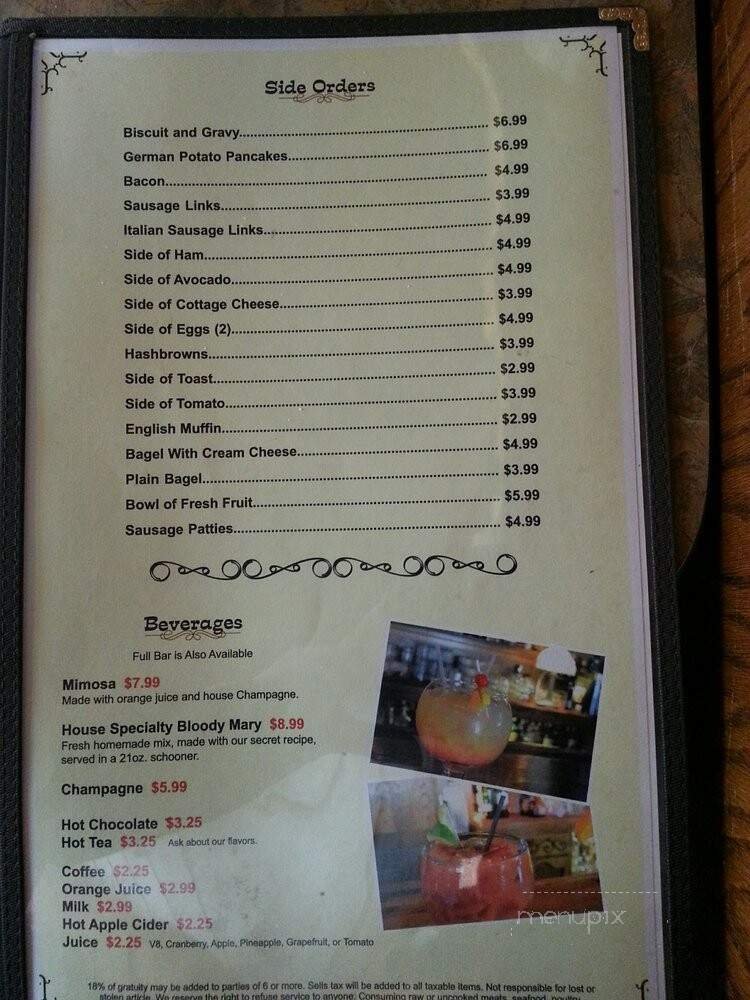 Side Orders
Biscuit and Gravy........ $6.99
German Potato Pancakes........ $6.99
Bacon........ $4.99
Sausage Links........ $3.99
Italian Sausage Links........ $4.99
Side of Ham........ $4.99
Side of Avocado........ $4.99
Side of Cottage Cheese........ $3.99
Side of Eggs (2)........ $4.99
Hashbrowns........ $3.99
Side of Toast........ $2.99
Side of Tomato........ $3.99
English Muffin........ $2.99
Bagel With Cream Cheese........ $4.99
Plain Bagel........ $3.99
Bowl of Fresh Fruit........ $5.99
Sausage Patties........ $4.99
Beverages
Full Bar is Also Available
Mimosa $7.99
Made with orange juice and house Champagne.
House Specialty Bloody Mary $8.99
Fresh homemade mix, made with our secret recipe,
served in a 21oz. schooner.
Champagne $5.99
Hot Chocolate $3.25
Hot Tea $3.25 Ask about our flavors.
Coffee $2.25
Orange Juice $2.99
Milk $2.99
Hot Apple Cider $2.25
Juice $2.25 V8, Cranberry, Apple, Pineapple, Grapefruit, or Tomato
menupix
18% of gratuity may be added to parties of 6 or more. Sells tax will be added to all taxable items. Not responsible for lost or
stolen article. We reserve the right to refuse service to anyone. Consuming raw or uncooked meats, seafood, poultry